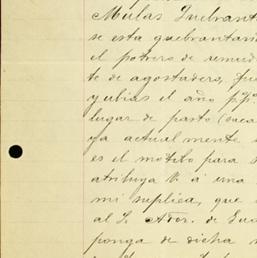 Mulas Quebrant
se esta quebrantan
el potrero de
te de agostadero,
y ubias el año ppº
lugar de pasto
ya actualmente
es el motivo para
atribuya V. á una
mi suplica, que
al S. Ador. de
ponga de dicha